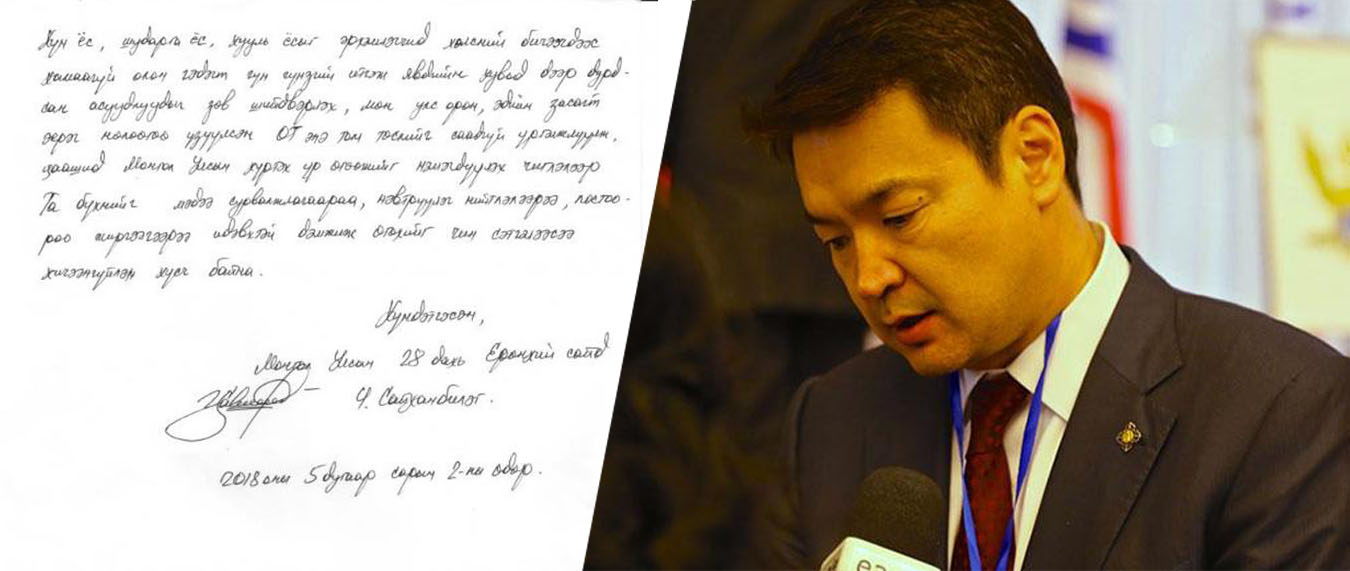 Хүн ёс, шударга ёс, хууль ёсыг эрхэмлэгчид хэлсний бичээгдээс
хамаагүй олон гэдэгт гүн гүнзгий итгэж явдгийн хувьд дээр дурд-
сан асуудлуудыг зөв шийдвэрлэх, мөн улс орон, эдийн засагт
эерэг нөлөөгөө үзүүлсэн ОТ энэ том төслийг саадгүй үргэлжлүүлж,
цаашид Монгол Улсын хүртэх үр өгөөжийг нэмэгдүүлэх чиглэлээр
Та бүхнийг мэдээ сурвалжлагаараа, нэвтрүүлэг нийтлэлээрээ, постоо-
роо жиргээгээрээ идэвхтэй дэмжиж өгөхийг чин сэтгэлээсээ
хичээнгүйлэн хүсч байна.
Хүндэтгэсэн,
Монгол Улсын 28 дахь Ерөнхий сайд
Ч. Сайханбилэг.
2018 оны 5 дугаар сарын 2-ны өдөр.